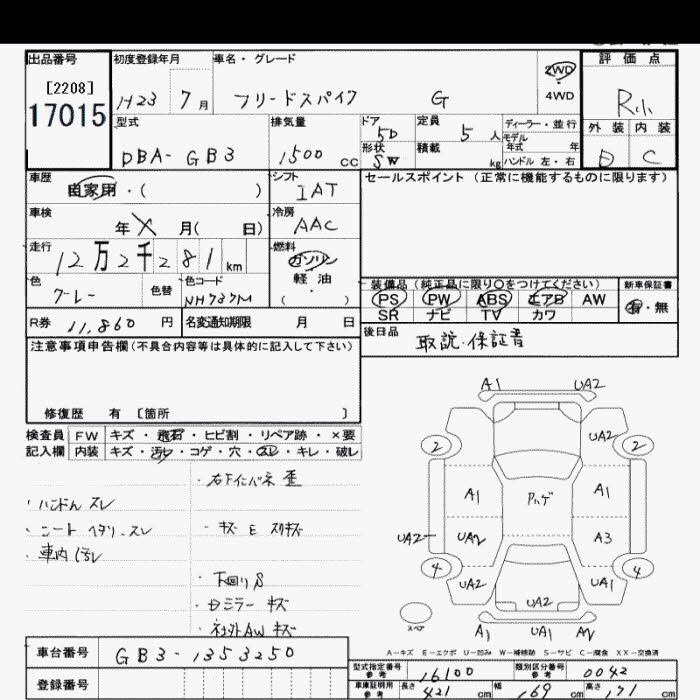 出品番号
[2208]
17015
初度登録年月
H23 7月
車名・グレード
フリードスパイク G
2WD
4WD
評価点
R小
外装 内装
D C
型式
DBA-GB3
排気量
1500 cc
ドア
5D
形状
SW
定員
5人
積載
kg
ディーラー・並行
モデル
年式 年
ハンドル 左・右
車歴
自家用・( )
シフト
IAT
車検
年 X 月( 日)
冷房
AAC
走行
12万2千281 km
燃料
ガソリン
軽油・
( )
色
グレー
色替
色コード
NH737M
R券 11,860 円
名変通知期限 月 日
セールスポイント(正常に機能するものに限ります)
装備品(純正品に限り〇をつけてください)
PS PW ABS エアB AW
SR ナビ TV カワ
新車保証書
有・無
後日品
取説・保証書
注意事項申告欄(不具合内容等は具体的に記入して下さい)
修復歴 有 [箇所 ]
検査員
記入欄
FW キズ・飛石・ヒビ割・リペア跡・×要
内装 キズ・汚レ・コゲ・穴・スレ・キレ・破レ
・ハンドル スレ
・シート ヘタリ、スレ
・車内汚レ
・右下インパネ 歪
・キズ E スリキズ
・下回りS
・Dミラー キズ
・社外AW キズ
A1 UA2
2 UA2 2
A1 Pハゲ A1
UA2 UA2 A3
4 UA2 UA1 4
UA2
スペア
A1 UA1 A2
A-キズ E-エクボ U-凹み W-補修跡 S-サビ C-腐食 XX-交換済
車台番号
GB3-1353250
登録番号
型式指定番号
参考
16100
類別区分番号
参考
0042
車庫証明用
参考
長さ 421 cm
幅 169 cm
高さ 171 cm